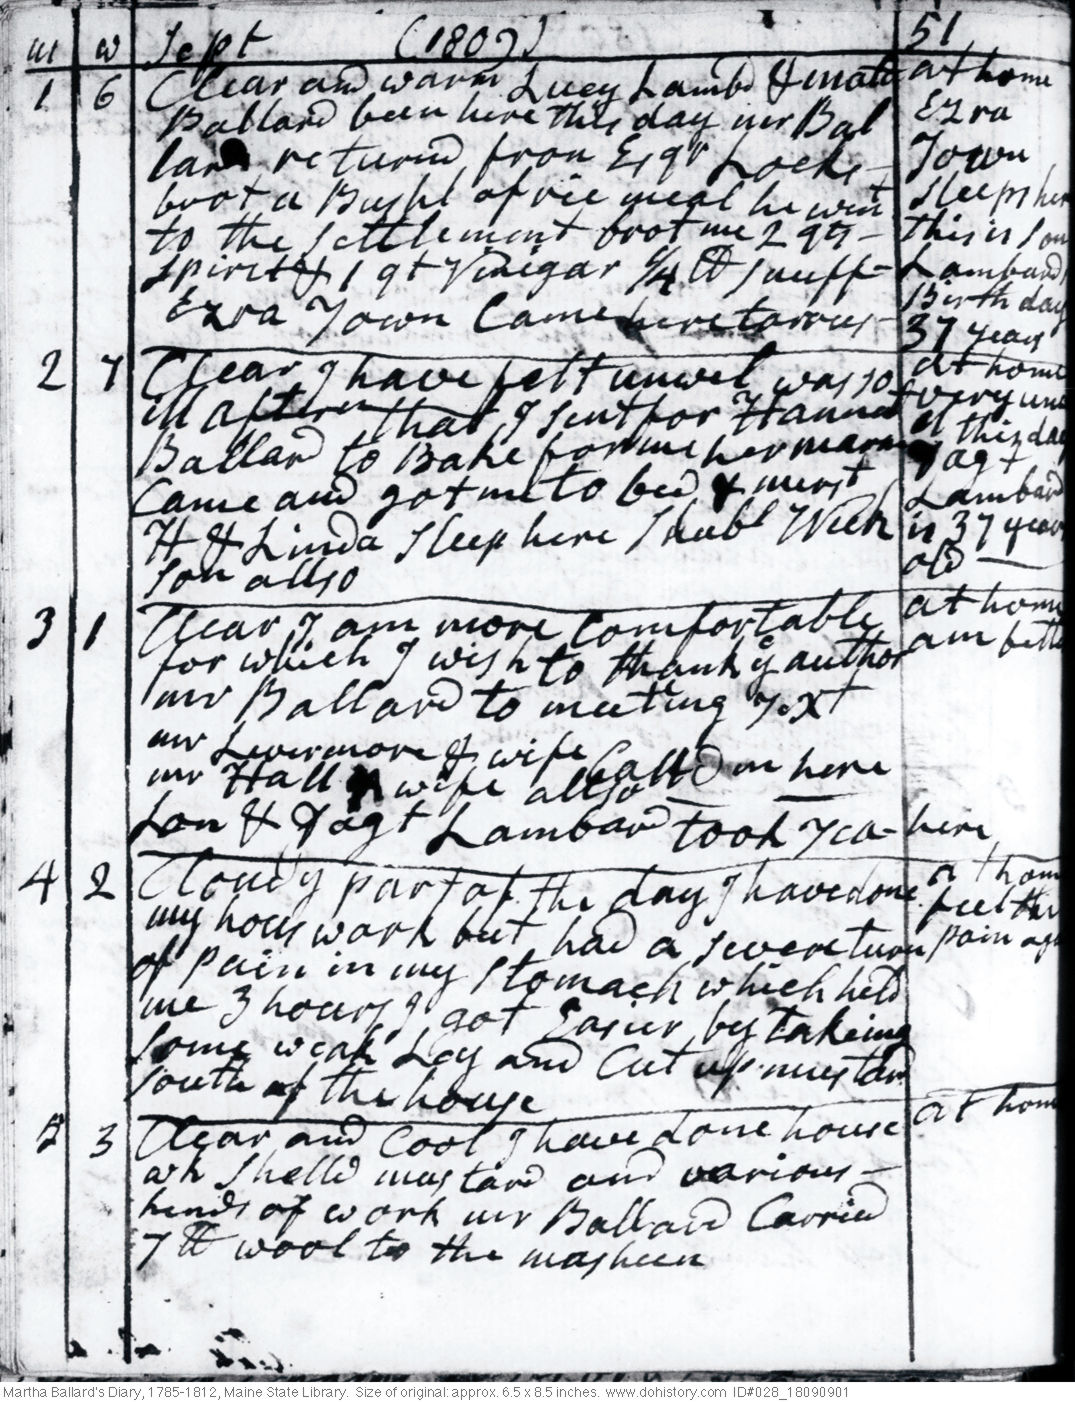 m w Sept (1809) 51
1 6 Clear and warm Lucy Lambd &
Ballard been here this day mr Bal
lard returnd from Esqr Locks
brot a Bushl of rie meal he went
to the settlement brot me 2 qts
spirit & 1 qt Vinigar 1/4 lb snuff
Ezra Town Came here
at home
Ezra
Town
sleeps here
this is son
Lambards
Birth day
37 years
2 7 Clear I have felt unwel was so
ill aftern that I sent for Hanna
Ballard to Bake for me her marm
Came and got me to bed & nurst
H & Linda sleep here Shubl Hick
son allso
at home
very unw
el this day
Dagt
Lambard
is 37 years
old
3 1 Clear I am more Comfortable
for which I wish to thank ye author
mr Ballard to meeting
mr Livermore & wife
mr Hall wife allso Calld on here
Son & Dagt Lambard took Tea here
at home
am better
4 2 Cloudy part of the day I have done
my hous work but had a severe turn
of Pain in my stomach which held
me 3 hours I got Easier by takeing
some weak Ley and Cut up mustard
south of the house
at home
feel the
pain aga
5 3 Clear and Cool I have done house
wk shelld mustard and various
kinds of work mr Ballard Carried
7 lb wool to the masheen
at home
Martha Ballard's Diary, 1785-1812, Maine State Library. Size of original: approx. 6.5 x 8.5 inches. www.dohistory.com ID#028_18090901